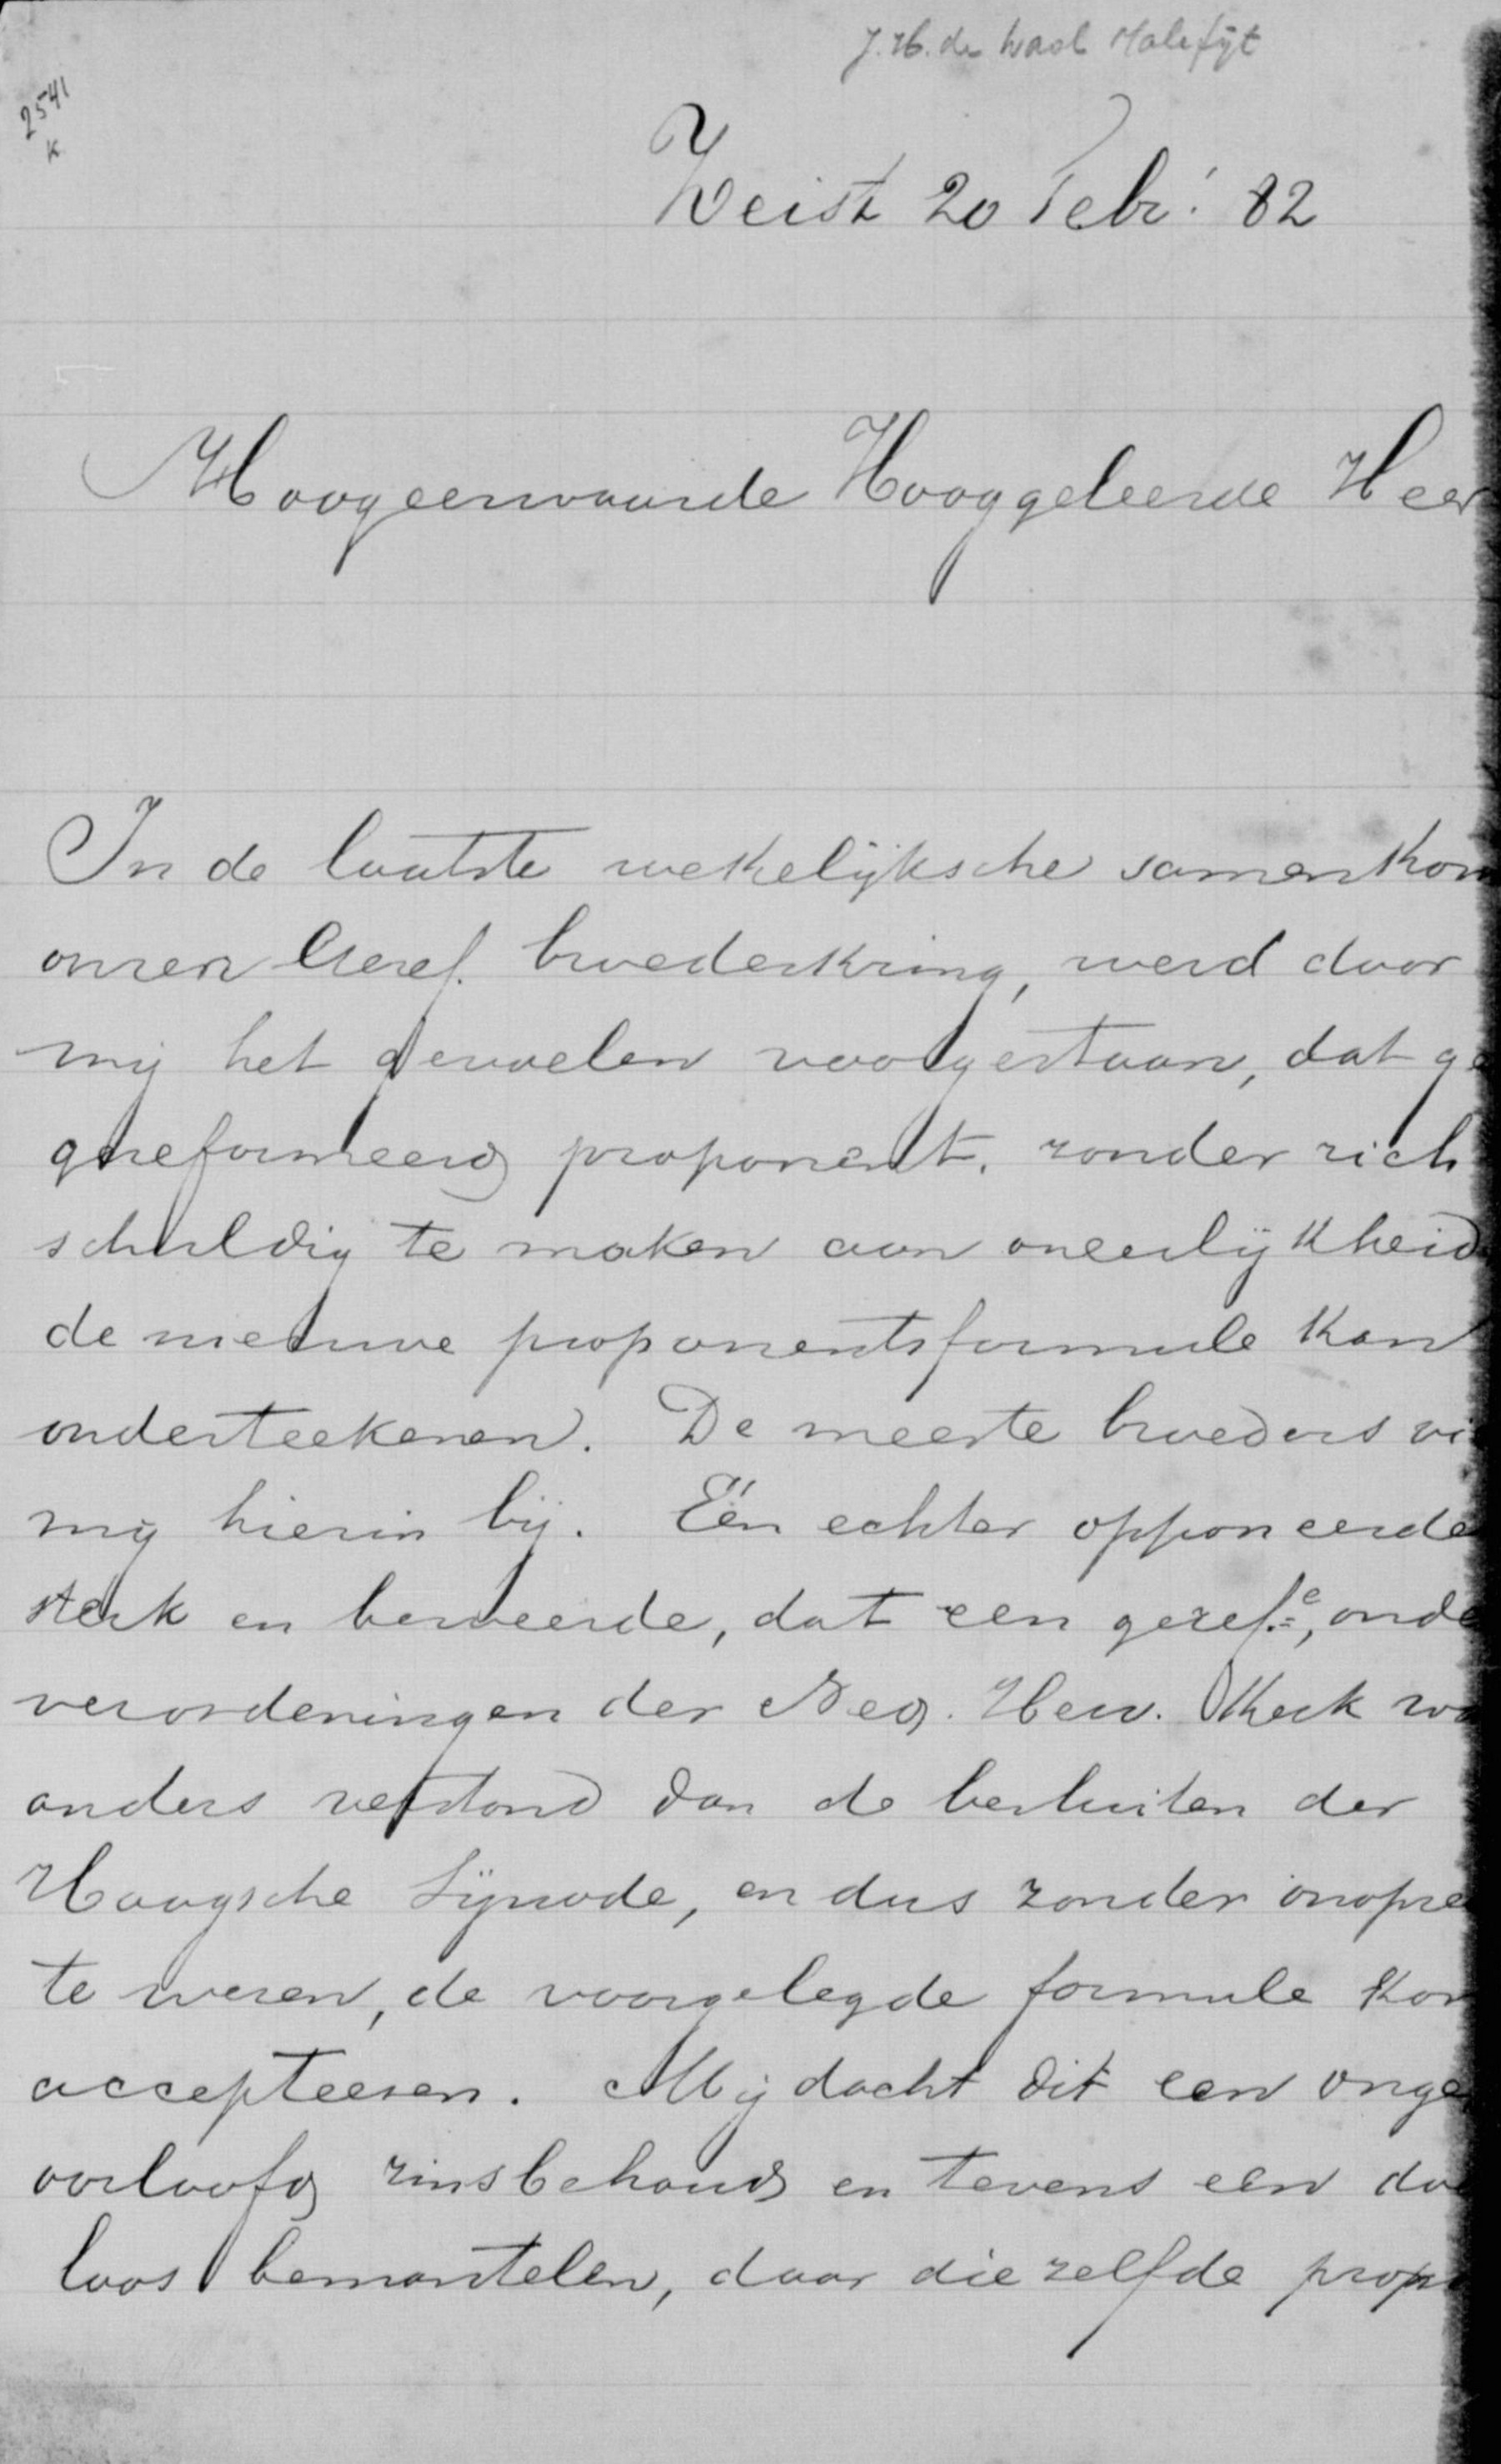 J.H. de Waal Malefijt
2541
K
Zeist 20 Febr: 82
Hoogeerwaarde Hooggeleerde Heer
In de laatste wekelijksche samenkom
onzen Geref. broederkring, werd door
mij het gevoelen voorgestaan, dat ge
gereformeerd proponent, zonder zich
schuldig te maken aan oneerlijkheid
de nieuwe proponentsformule kan
onderteekenen. De meeste broeders vi
mij hierin bij. Eén echter opponeerde
sterk en beweerde, dat een geref.e, onde
verordeningen der Ned. Herv. Kerk wa
anders verstond dan de besluiten der
Haagsche Sijnode, en dus zonder onopre
te wezen, de voorgelegde formule kon
accepteeren. Mij dacht dit een onge
oorloofd zinsbehoud en tevens een doe
loos bemantelen, daar die zelfde prop